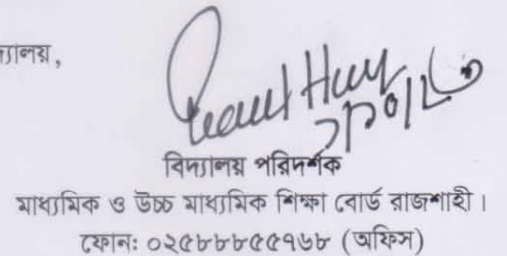 দ্যালয়,
বিদ্যালয় পরিদর্শক
মাধ্যমিক ও উচ্চ মাধ্যমিক শিক্ষা বোর্ড রাজশাহী।
ফোন: ০২৫৮৮৮৫৫৭৬৮ (অফিস)